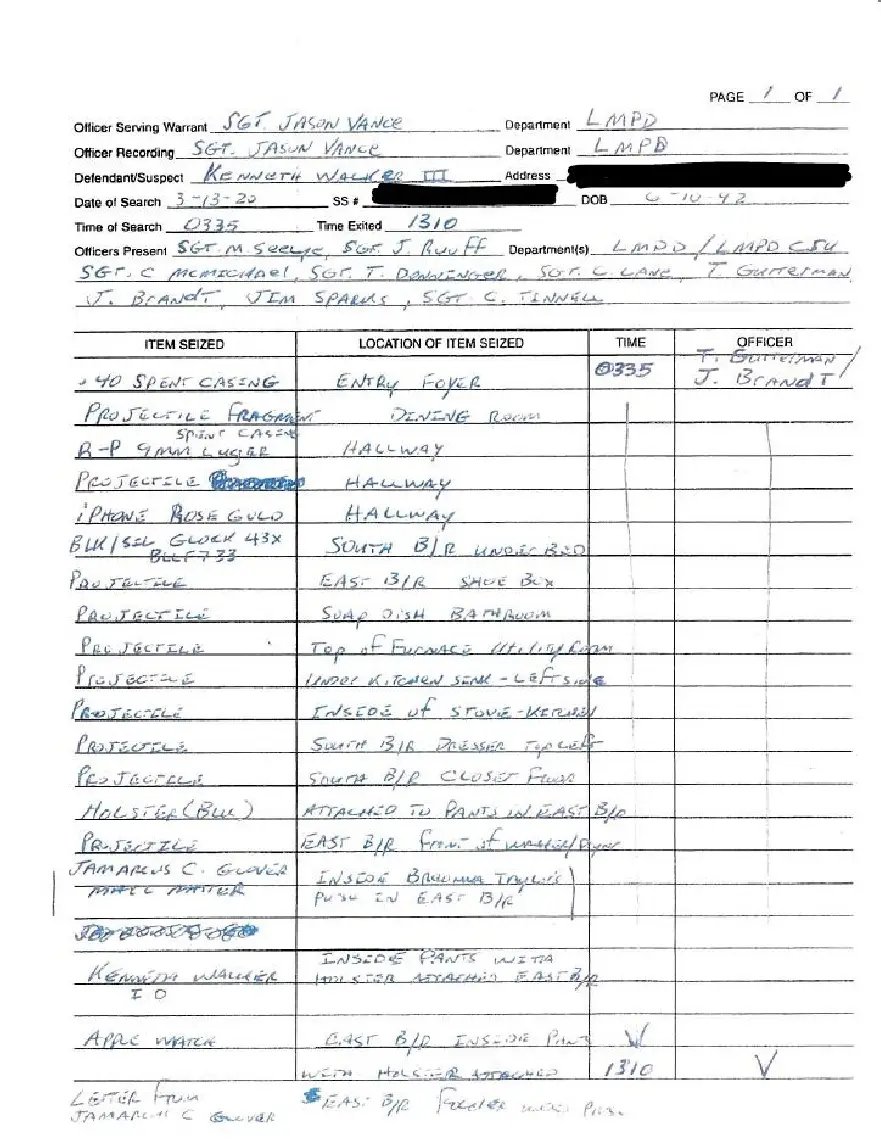 PAGE 1 OF 1
Officer Serving Warrant SGT. JASON VANCE Department LMPD
Officer Recording SGT. JASON VANCE Department LMPD
Defendant/Suspect KENNETH WALKER III Address
Date of Search 3-13-20 SS # DOB
Time of Search 0335 Time Exited 1310
Officers Present SGT. M. SEELYE, SGT. J. RUOFF Department(s) LMPD / LMPD CSU
SGT. C MCMICHAEL, SGT. T. SGT. C. LANE, T. GUITERMAN
J. BRANDT, JIM SPARKS, SGT. C. TINNELL
ITEM SEIZED LOCATION OF ITEM SEIZED TIME OFFICER
.40 SPENT CASING ENTRY FOYER 0335 T. GUITERMAN / J. BRANDT
PROJECTILE FRAGMENT DINING ROOM
SPENT CASING
R-P 9MM LUGER HALLWAY
PROJECTILE HALLWAY
iPHONE ROSE GOLD HALLWAY
BLK/SIL GLOCK 43X SOUTH B/R UNDER BED
PROJECTILE EAST B/R SHOE BOX
PROJECTILE SOAP DISH BATHROOM
PROJECTILE TOP of FURNACE Utility Room
PROJECTILE UNDER KITCHEN SINK - LEFT SIDE
PROJECTILE INSIDE of STOVE - KITCHEN
PROJECTILE SOUTH B/R DRESSER TOP LEFT
PROJECTILE SOUTH B/R CLOSET FLOOR
HOLSTER (BLK) ATTACHED TO PANTS IN EAST B/R
PROJECTILE EAST B/R front of washer/Dryer
JAMARCUS C. GLOVER INSIDE BREONNA TAYLOR'S
MAIL MATTER IN EAST B/R
KENNETH WALKER INSIDE PANTS WITH
ID HOLSTER ATTACHED EAST B/R
APPLE WATCH EAST B/R INSIDE PANTS
WITH HOLSTER ATTACHED 1310
LETTER FROM EAST B/R
JAMARCUS C GLOVER